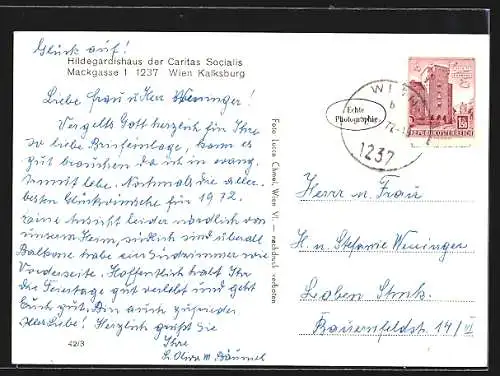 Glück auf!
Hildegardishaus der Caritas Socialis
Mackgasse 1 1237 Wien Kalksburg
Liebe Frau u. Herr Weninger!
Vergelts Gott herzlich für Ihre
so liebe Briefeinlage, kann es
gut brauchen da ich in
Armut lebe. Nochmals die aller-
besten Glückwünsche für 1972.
eine Ansicht leider nördlich von
unserem Heim, südlich sind überall
Balkone habe ein Südzimmer wie
Vorderseite. Hoffentlich habt Ihr
die Feiertage gut verlebt und geht
Euch gut. Bin auch zufrieden
Herzlich grüßt Sie
Ihre
42/3
Foto Lucca Chmel, Wien VI. — nachdruck verboten
Echte
Photographie
WIEN
72-15
1237
REPUBLIK ÖSTERREICH
Herrn u. Frau
H. u. Stefanie Weninger
Leoben Stmk.
Bauernfeldstr. 14/VI